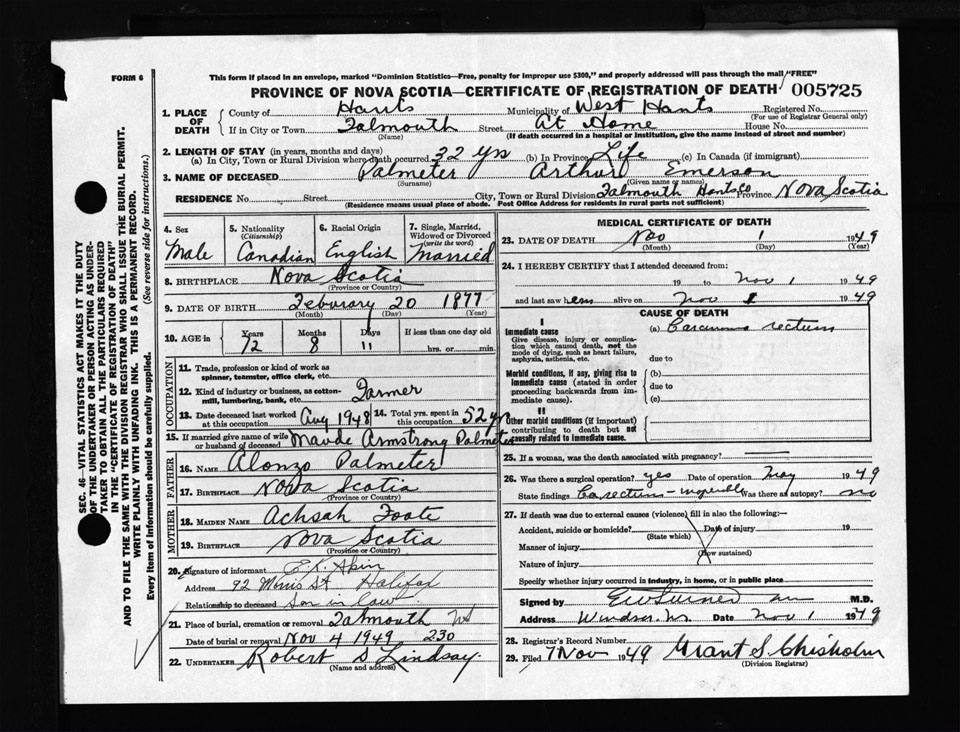 FORM 6
This form if placed in an envelope, marked "Dominion Statistics—Free, penalty for improper use $300," and properly addressed will pass through the mail "FREE"
PROVINCE OF NOVA SCOTIA—CERTIFICATE OF REGISTRATION OF DEATH 005725
1. PLACE OF DEATH
County of Hants Municipality of West Hants Registered No.
(For use of Registrar General only)
If in City or Town Falmouth Street At Home House No.
(Name) (If death occurred in a hospital or institution, give the name instead of street and number)
2. LENGTH OF STAY (in years, months and days)
(a) In City, Town or Rural Division where death occurred 32 yrs (b) In Province Life (c) In Canada (if immigrant)
3. NAME OF DECEASED Palmeter Arthur Emerson
(Surname) (Given name or names)
RESIDENCE No. Street City, Town or Rural Division Falmouth Hants Co Province Nova Scotia
(Residence means usual place of abode. Post Office Address for residents in rural parts not sufficient)
4. Sex
Male
5. Nationality
(Citizenship)
Canadian
6. Racial Origin
English
7. Single, Married, Widowed or Divorced
(write the word)
Married
8. BIRTHPLACE Nova Scotia
(Province or Country)
9. DATE OF BIRTH Feburary 20 1877
(Month) (Day) (Year)
10. AGE in
Years Months Days If less than one day old
72 8 11 hrs. or min.
OCCUPATION
11. Trade, profession or kind of work as
spinner, teamster, office clerk, etc.
12. Kind of industry or business, as cotton-
mill, lumbering, bank, etc. Farmer
13. Date deceased last worked at this occupation Aug 1948
14. Total yrs. spent in this occupation 52 yr
15. If married give name of wife or husband of deceased Maude Armstrong Palmeter
FATHER
16. NAME Alonzo Palmeter
17. BIRTHPLACE Nova Scotia
(Province or Country)
MOTHER
18. MAIDEN NAME Achsah Foote
19. BIRTHPLACE Nova Scotia
(Province or Country)
20. Signature of informant
Address 92 Morris St Halifax
Relationship to deceased Son in law
21. Place of burial, cremation or removal Falmouth NS
Date of burial or removal Nov 4 1949 230
22. UNDERTAKER Robert D Lindsay.
(Name and address)
MEDICAL CERTIFICATE OF DEATH
23. DATE OF DEATH Nov 1 1949
(Month) (Day) (Year)
24. I HEREBY CERTIFY that I attended deceased from:
19 to Nov 1 1949
and last saw him alive on Nov 1 1949
CAUSE OF DEATH
I
Immediate cause
Give disease, injury or complication which caused death, not the mode of dying, such as heart failure, asphyxia, asthenia, etc.
(a) Carcinoma rectum
due to
Morbid conditions, if any, giving rise to immediate cause (stated in order proceeding backwards from immediate cause).
(b)
due to
(c)
II
Other morbid conditions (if important) contributing to death but not causally related to immediate cause.
25. If a woman, was the death associated with pregnancy?
26. Was there a surgical operation? yes Date of operation May 1949
State findings Ca rectum - inoperable Was there an autopsy? no
27. If death was due to external causes (violence) fill in also the following:—
Accident, suicide or homicide? Date of injury 19
(State which)
Manner of injury
(How sustained)
Nature of injury
Specify whether injury occurred in industry, in home, or in public place
Signed by M.D.
Address Windsor, N.S. Date Nov 1 1949
28. Registrar's Record Number
29. Filed 7 Nov 1949 Grant S. Chisholm
(Division Registrar)
SEC. 46—VITAL STATISTICS ACT MAKES IT THE DUTY
OF THE UNDERTAKER OR PERSON ACTING AS UNDER-
TAKER TO OBTAIN ALL THE PARTICULARS REQUIRED
IN THE "CERTIFICATE OF REGISTRATION OF DEATH"
AND TO FILE THE SAME WITH THE DIVISION REGISTRAR WHO SHALL ISSUE THE BURIAL PERMIT.
WRITE PLAINLY WITH UNFADING INK. THIS IS A PERMANENT RECORD.
Every item of Information should be carefully supplied. (See reverse side for instructions.)